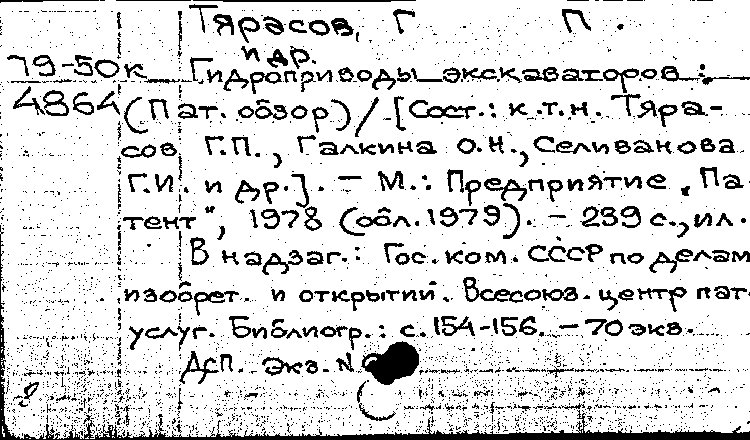 Тярасов, Г П.
и др.
79-50к Гидроприводы экскаваторов :
4864 (Пат. обзор) / [Сост.: к.т.н. Тяра-
сов Г.П., Галкина О.Н., Селиванова
Г.И. и др.]. — М.: Предприятие „Па-
тент", 1978 (обл. 1979). — 239 с., ил.
В надзаг.: Гос. ком. СССР по делам
изобрет. и открытий. Всесоюз. центр пат.
услуг. Библиогр.: с. 154-156. — 70 экз.
Дсп. Экз. N
8